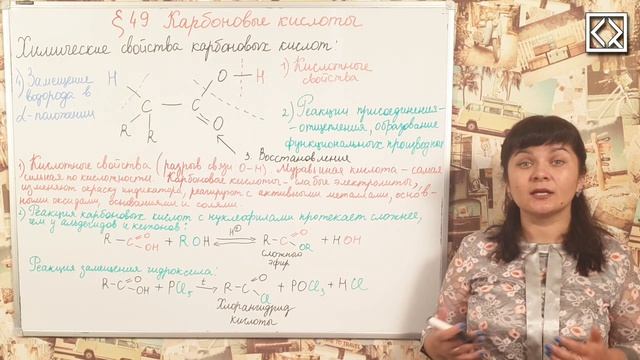 § 49 Карбоновые кислоты
Химические свойства карбоновых кислот:
4) Замещение
водорода в
α-положении
H
O — H
C — C
O
R
R
1) Кислотные
свойства
2) Реакции присоединения-
-отщепления, образование
функциональных производных
3. Восстановление
1) Кислотные свойства (разрыв связи O-H). Муравьиная кислота - самая
сильная по кислотности. Карбоновые кислоты - слабые электролиты,
изменяют окраску индикатора, реагируют с активными металлами, основ-
ными оксидами, основаниями и солями.
2) Реакция карбоновых кислот с нуклеофилами протекает сложнее,
чем у альдегидов и кетонов:
R-C=O OH + ROH ⇌ H⊕ R-C=O OR + HOH
сложный
эфир
Реакция замещения гидроксила:
R-C=O OH + PCl5 t→ R-C=O Cl + POCl3 + HCl
Хлорангидрид
кислоты